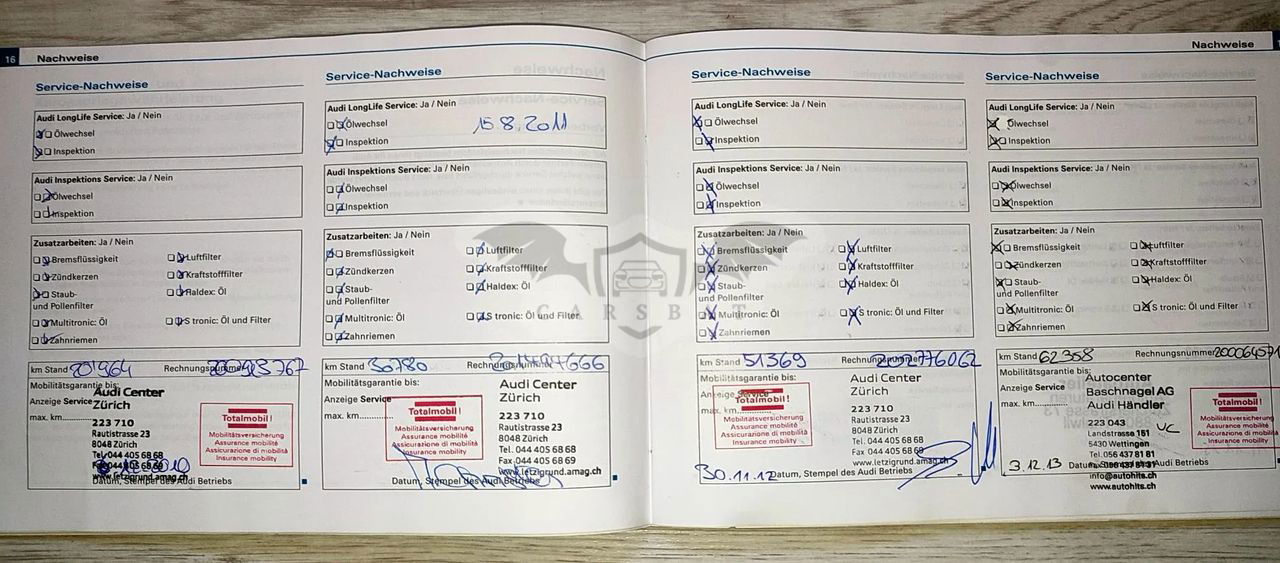 16 Nachweise
Service-Nachweise
Audi LongLife Service: Ja / Nein
Ölwechsel
Inspektion
Audi Inspektions Service: Ja / Nein
Ölwechsel
Inspektion
Zusatzarbeiten: Ja / Nein
Bremsflüssigkeit
Luftfilter
Zündkerzen
Kraftstofffilter
Staub-
und Pollenfilter
Haldex: Öl
Multitronic: Öl
S tronic: Öl und Filter
Zahnriemen
km Stand
Mobilitätsgarantie bis:
Anzeige Service
max. km
Audi Center
Zürich
223 710
Rautistrasse 23
8048 Zürich
Tel. 044 405 68 68
Fax 044 405 68 69
www.letzigrund.amag.ch
Totalmobil!
Mobilitätsversicherung
Assurance mobilité
Assicurazione di mobilità
Insurance mobility
Datum, Stempel des Audi Betriebs
Service-Nachweise
Audi LongLife Service: Ja / Nein
Ölwechsel
15.8.2011
Inspektion
Audi Inspektions Service: Ja / Nein
Ölwechsel
Inspektion
Zusatzarbeiten: Ja / Nein
Bremsflüssigkeit
Luftfilter
Zündkerzen
Kraftstofffilter
Staub-
und Pollenfilter
Haldex: Öl
Multitronic: Öl
S tronic: Öl und Filter
Zahnriemen
km Stand 30780
Mobilitätsgarantie bis:
Anzeige Service
max. km
Audi Center
Zürich
223 710
Rautistrasse 23
8048 Zürich
Tel. 044 405 68 68
Fax 044 405 68 69
www.letzigrund.amag.ch
Totalmobil!
Mobilitätsversicherung
Assurance mobilité
Assicurazione di mobilità
Insurance mobility
Datum, Stempel des Audi Betriebs
Nachweise
Service-Nachweise
Audi LongLife Service: Ja / Nein
Ölwechsel
Inspektion
Audi Inspektions Service: Ja / Nein
Ölwechsel
Inspektion
Zusatzarbeiten: Ja / Nein
Bremsflüssigkeit
Luftfilter
Zündkerzen
Kraftstofffilter
Staub-
und Pollenfilter
Haldex: Öl
Multitronic: Öl
S tronic: Öl und Filter
Zahnriemen
km Stand 51369 Rechnungsnummer 202776062
Mobilitätsgarantie bis:
Anzeige Service
max. km
Audi Center
Zürich
223 710
Rautistrasse 23
8048 Zürich
Tel. 044 405 68 68
Fax 044 405 68 69
www.letzigrund.amag.ch
Totalmobil!
Mobilitätsversicherung
Assurance mobilité
Assicurazione di mobilità
Insurance mobility
30.11.12 Datum, Stempel des Audi Betriebs
Service-Nachweise
Audi LongLife Service: Ja / Nein
Ölwechsel
Inspektion
Audi Inspektions Service: Ja / Nein
Ölwechsel
Inspektion
Zusatzarbeiten: Ja / Nein
Bremsflüssigkeit
Luftfilter
Zündkerzen
Kraftstofffilter
Staub-
und Pollenfilter
Haldex: Öl
Multitronic: Öl
S tronic: Öl und Filter
Zahnriemen
km Stand 62358 Rechnungsnummer
Mobilitätsgarantie bis:
Anzeige Service
max. km
Autocenter
Baschnagel AG
Audi Händler
223 043
Landstrasse 161
5430 Wettingen
Tel. 056 437 81 81
Fax 056 437 81 31
info@autohits.ch
www.autohits.ch
Totalmobil!
Mobilitätsversicherung
Assurance mobilité
Assicurazione di mobilità
Insurance mobility
3.12.13 Datum, Stempel des Audi Betriebs
CARSBAT